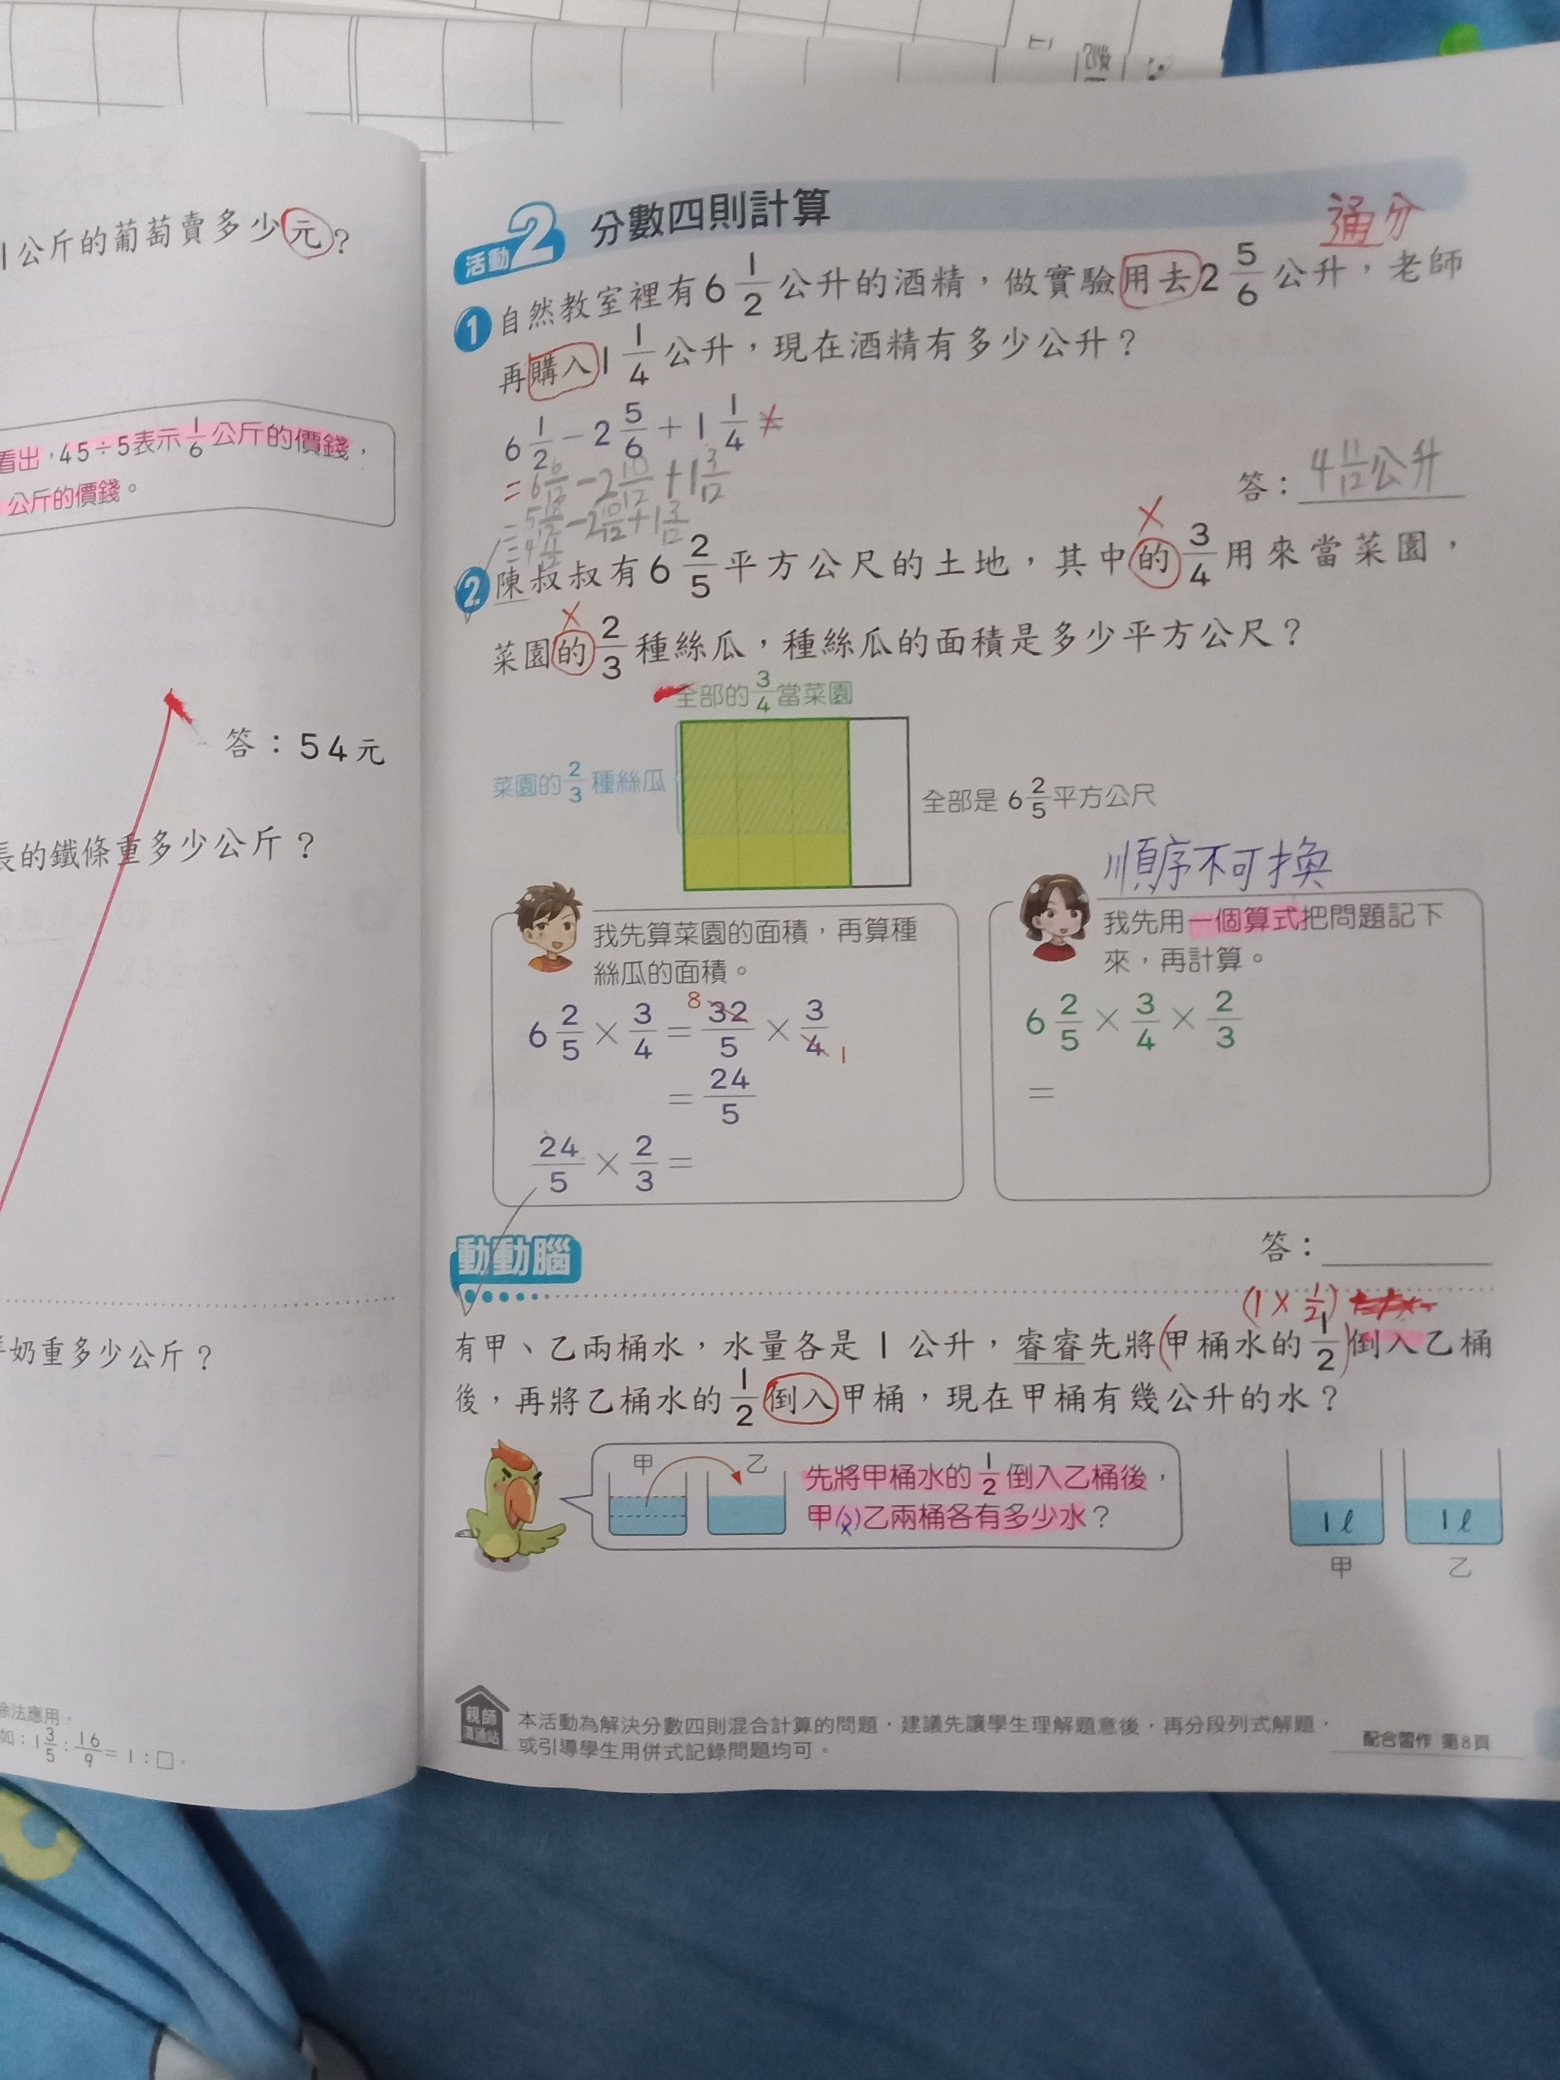 1公斤的葡萄賣多少元?
看出,45÷5表示1/6公斤的價錢,
公斤的價錢。
答:54元
長的鐵條重多少公斤?
奶重多少公斤?
除法應用。
如:1 3/5:16/9=1:□。
活動2 分數四則計算
通分
1 自然教室裡有6 1/2公升的酒精,做實驗用去2 5/6公升,老師
再購入1 1/4公升,現在酒精有多少公升?
6 1/2-2 5/6+1 1/4
=6 6/12-2 10/12+1 3/12
=5 18/12-2 10/12+1 3/12
=4 11/12
答:4 11/12公升
2 陳叔叔有6 2/5平方公尺的土地,其中的3/4用來當菜園,
菜園的2/3種絲瓜,種絲瓜的面積是多少平方公尺?
全部的3/4當菜園
菜園的2/3種絲瓜
全部是6 2/5平方公尺
我先算菜園的面積,再算種
絲瓜的面積。
6 2/5×3/4=32/5×3/4
8
1
=24/5
24/5×2/3=
順序不可換
我先用一個算式把問題記下
來,再計算。
6 2/5×3/4×2/3
=
答:
動動腦
(1×1/2)
有甲、乙兩桶水,水量各是1公升,睿睿先將(甲桶水的1/2)倒入乙桶
後,再將乙桶水的1/2倒入甲桶,現在甲桶有幾公升的水?
甲 乙
先將甲桶水的1/2倒入乙桶後,
甲、乙兩桶各有多少水?
1ℓ 1ℓ
甲 乙
親師溝通站
本活動為解決分數四則混合計算的問題,建議先讓學生理解題意後,再分段列式解題,
或引導學生用併式記錄問題均可。
配合習作 第8頁